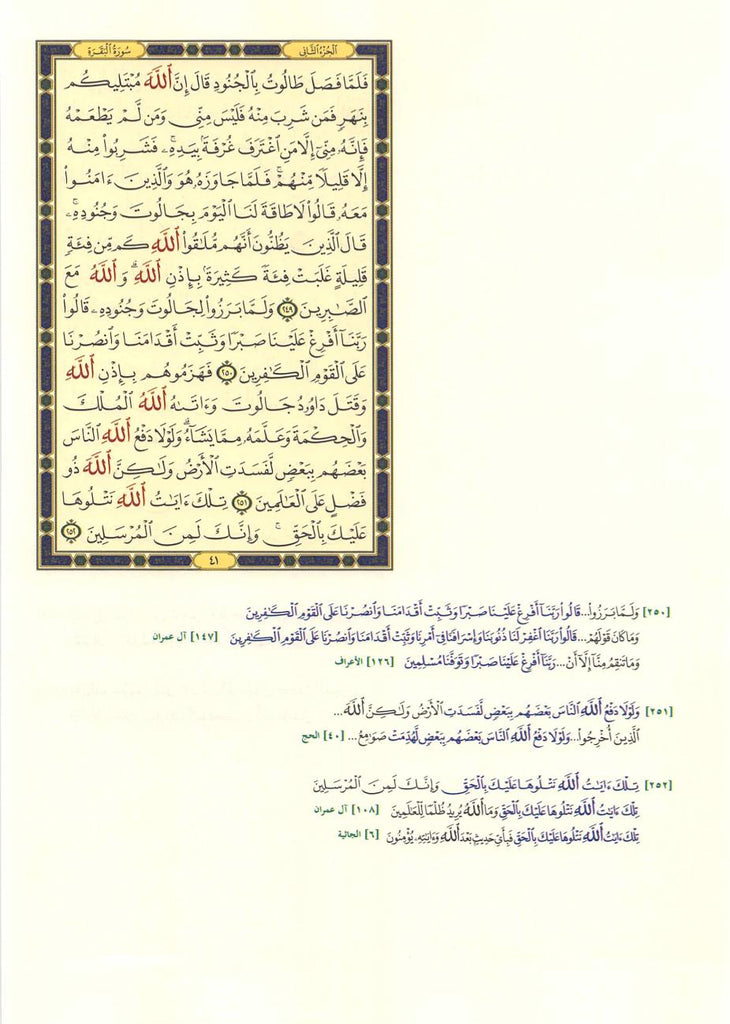 الجزء الثاني
سورة البقرة
فَلَمَّا فَصَلَ طَالُوتُ بِالْجُنُودِ قَالَ إِنَّ اللَّهَ مُبْتَلِيكُم
بِنَهَرٍ فَمَن شَرِبَ مِنْهُ فَلَيْسَ مِنِّي وَمَن لَّمْ يَطْعَمْهُ
فَإِنَّهُۥ مِنِّيٓ إِلَّا مَنِ ٱغْتَرَفَ غُرْفَةًۢ بِيَدِهِۦۚ فَشَرِبُوا۟ مِنْهُ
إِلَّا قَلِيلًا مِّنْهُمْۚ فَلَمَّا جَاوَزَهُۥ هُوَ وَٱلَّذِينَ ءَامَنُوا۟
مَعَهُۥ قَالُوا۟ لَا طَاقَةَ لَنَا ٱلْيَوْمَ بِجَالُوتَ وَجُنُودِهِۦۚ
قَالَ ٱلَّذِينَ يَظُنُّونَ أَنَّهُم مُّلَٰقُوا۟ ٱللَّهِ كَم مِّن فِئَةٍ
قَلِيلَةٍ غَلَبَتْ فِئَةً كَثِيرَةًۢ بِإِذْنِ ٱللَّهِۗ وَٱللَّهُ مَعَ
ٱلصَّٰبِرِينَ ٢٤٩ وَلَمَّا بَرَزُوا۟ لِجَالُوتَ وَجُنُودِهِۦ قَالُوا۟
رَبَّنَآ أَفْرِغْ عَلَيْنَا صَبْرًا وَثَبِّتْ أَقْدَامَنَا وَٱنصُرْنَا
عَلَى ٱلْقَوْمِ ٱلْكَٰفِرِينَ ٢٥٠ فَهَزَمُوهُم بِإِذْنِ ٱللَّهِ
وَقَتَلَ دَاوُۥدُ جَالُوتَ وَءَاتَىٰهُ ٱللَّهُ ٱلْمُلْكَ
وَٱلْحِكْمَةَ وَعَلَّمَهُۥ مِمَّا يَشَآءُۗ وَلَوْلَا دَفْعُ ٱللَّهِ ٱلنَّاسَ
بَعْضَهُم بِبَعْضٍ لَّفَسَدَتِ ٱلْأَرْضُ وَلَٰكِنَّ ٱللَّهَ ذُو
فَضْلٍ عَلَى ٱلْعَٰلَمِينَ ٢٥١ تِلْكَ ءَايَٰتُ ٱللَّهِ نَتْلُوهَا
عَلَيْكَ بِٱلْحَقِّۚ وَإِنَّكَ لَمِنَ ٱلْمُرْسَلِينَ ٢٥٢
٤١
[٢٥٠] وَلَمَّا بَرَزُوا۟... قَالُوا۟ رَبَّنَآ أَفْرِغْ عَلَيْنَا صَبْرًا وَثَبِّتْ أَقْدَامَنَا وَٱنصُرْنَا عَلَى ٱلْقَوْمِ ٱلْكَٰفِرِينَ
وَمَا كَانَ قَوْلَهُمْ... قَالُوا۟ رَبَّنَا ٱغْفِرْ لَنَا ذُنُوبَنَا وَإِسْرَافَنَا فِيٓ أَمْرِنَا وَثَبِّتْ أَقْدَامَنَا وَٱنصُرْنَا عَلَى ٱلْقَوْمِ ٱلْكَٰفِرِينَ [١٤٧] آل عمران
وَمَا تَنقِمُ مِنَّآ إِلَّآ أَنْ... رَبَّنَآ أَفْرِغْ عَلَيْنَا صَبْرًا وَتَوَفَّنَا مُسْلِمِينَ [١٢٦] الأعراف
[٢٥١] وَلَوْلَا دَفْعُ ٱللَّهِ ٱلنَّاسَ بَعْضَهُم بِبَعْضٍ لَّفَسَدَتِ ٱلْأَرْضُ وَلَٰكِنَّ ٱللَّهَ...
ٱلَّذِينَ أُخْرِجُوا۟... وَلَوْلَا دَفْعُ ٱللَّهِ ٱلنَّاسَ بَعْضَهُم بِبَعْضٍ لَّهُدِّمَتْ صَوَٰمِعُ... [٤٠] الحج
[٢٥٢] تِلْكَ ءَايَٰتُ ٱللَّهِ نَتْلُوهَا عَلَيْكَ بِٱلْحَقِّ وَإِنَّكَ لَمِنَ ٱلْمُرْسَلِينَ
تِلْكَ ءَايَٰتُ ٱللَّهِ نَتْلُوهَا عَلَيْكَ بِٱلْحَقِّ وَمَا ٱللَّهُ يُرِيدُ ظُلْمًا لِّلْعَٰلَمِينَ [١٠٨] آل عمران
تِلْكَ ءَايَٰتُ ٱللَّهِ نَتْلُوهَا عَلَيْكَ بِٱلْحَقِّ فَبِأَيِّ حَدِيثٍۭ بَعْدَ ٱللَّهِ وَءَايَٰتِهِۦ يُؤْمِنُونَ [٦] الجاثية